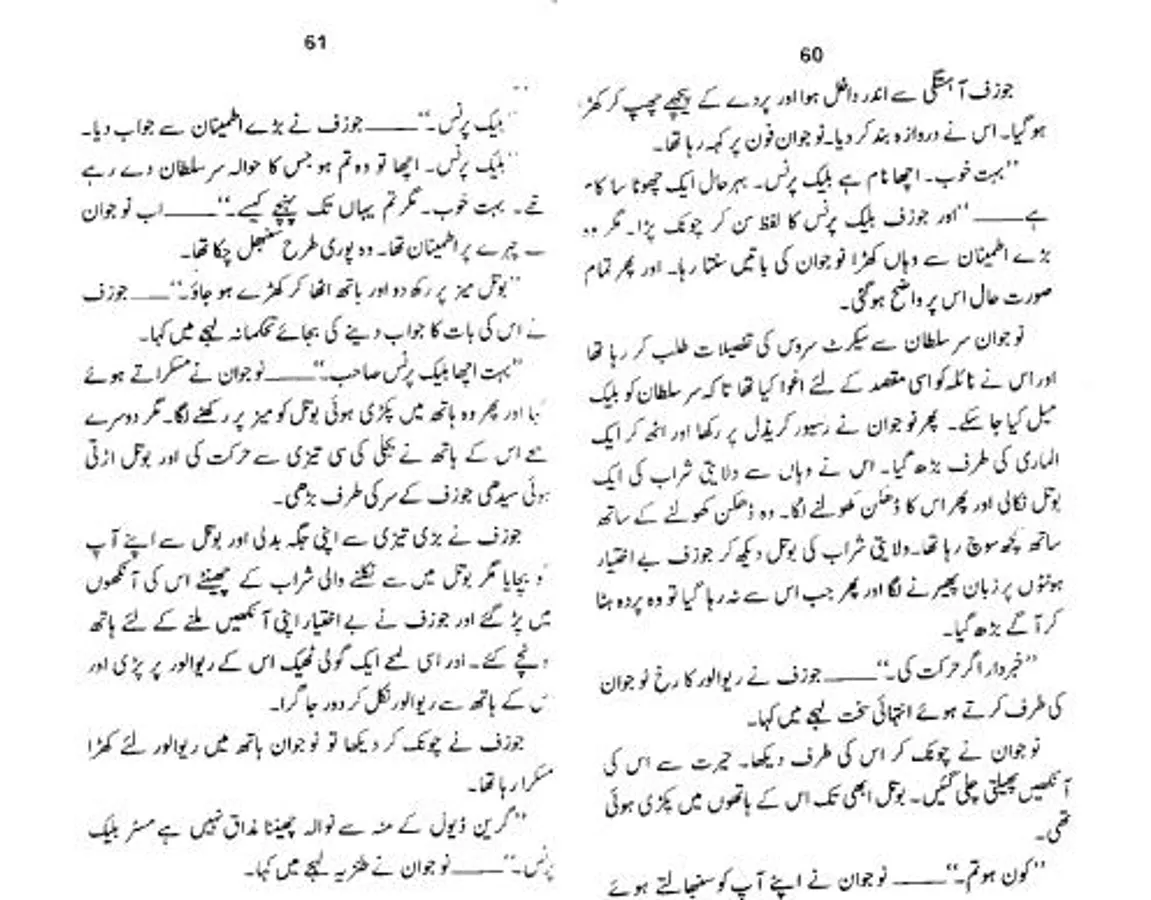 60
جوزف آہستگی سے اندر داخل ہوا اور پردے کے پیچھے چھپ کر کھڑا
ہو گیا۔ اس نے دروازہ بند کر دیا۔ نوجوان فون پر کہہ رہا تھا۔
”بہت خوب۔ اچھا نام ہے بلیک پرنس۔ بہرحال ایک چھوٹا سا کام
ہے ــــــ“ اور جوزف بلیک پرنس کا لفظ سن کر چونک پڑا۔ مگر وہ
بڑے اطمینان سے وہاں کھڑا نوجوان کی باتیں سنتا رہا۔ اور پھر تمام
صورت حال اس پر واضح ہو گئی۔
نوجوان سر سلطان سے سیکرٹ سروس کی تفصیلات طلب کر رہا تھا
اور اس نے نائلہ کو اسی مقصد کے لئے اغوا کیا تھا تا کہ سر سلطان کو بلیک
میل کیا جا سکے۔ پھر نوجوان نے رسیور کریڈل پر رکھا اور اٹھ کر ایک
الماری کی طرف بڑھ گیا۔ اس نے وہاں سے ولایتی شراب کی ایک
بوتل نکالی اور پھر اس کا ڈھکن کھولنے لگا۔ وہ ڈھکن کھولنے کے ساتھ
ساتھ کچھ سوچ رہا تھا۔ ولایتی شراب کی بوتل دیکھ کر جوزف بے اختیار
ہونٹوں پر زبان پھیرنے لگا اور پھر جب اس سے نہ رہا گیا تو وہ پردہ ہٹا
کر آگے بڑھ گیا۔
”خبردار اگر حرکت کی۔“ ــــــ جوزف نے ریوالور کا رخ نوجوان
کی طرف کرتے ہوئے انتہائی سخت لہجے میں کہا۔
نوجوان نے چونک کر اس کی طرف دیکھا۔ حیرت سے اس کی
آنکھیں پھیلتی چلی گئیں۔ بوتل ابھی تک اس کے ہاتھوں میں پکڑی ہوئی
تھی۔
”کون ہو تم۔“ ــــــ نوجوان نے اپنے آپ کو سنبھالتے ہوئے
61
”بلیک پرنس۔“ ــــــ جوزف نے بڑے اطمینان سے جواب دیا۔
”بلیک پرنس۔ اچھا تو وہ تم ہو جس کا حوالہ سر سلطان دے رہے
تھے۔ بہت خوب۔ مگر تم یہاں تک پہنچے کیسے۔“ ــــــ اب نوجوان
کے چہرے پر اطمینان تھا۔ وہ پوری طرح سنبھل چکا تھا۔
”بوتل میز پر رکھ دو اور ہاتھ اٹھا کر کھڑے ہو جاؤ۔“ ــــــ جوزف
نے اس کی بات کا جواب دینے کی بجائے تحکمانہ لہجے میں کہا۔
”بہت اچھا بلیک پرنس صاحب۔“ ــــــ نوجوان نے مسکراتے ہوئے
کہا اور پھر وہ ہاتھ میں پکڑی ہوئی بوتل کو میز پر رکھنے لگا۔ مگر دوسرے
لمحے اس کے ہاتھ نے بجلی کی سی تیزی سے حرکت کی اور بوتل اڑتی
ہوئی سیدھی جوزف کے سر کی طرف بڑھی۔
جوزف نے بڑی تیزی سے اپنی جگہ بدلی اور بوتل سے اپنے آپ
کو بچایا مگر بوتل میں سے نکلنے والی شراب کے چھینٹے اس کی آنکھوں
میں پڑ گئے اور جوزف نے بے اختیار اپنی آنکھیں ملنے کے لئے ہاتھ
اونچے کئے۔ اور اسی لمحے ایک گولی ٹھیک اس کے ریوالور پر پڑی اور
اس کے ہاتھ سے ریوالور نکل کر دور جا گرا۔
جوزف نے چونک کر دیکھا تو نوجوان ہاتھ میں ریوالور لئے کھڑا
مسکرا رہا تھا۔
”گرین ڈیول کے منہ سے نوالہ چھیننا مذاق نہیں ہے مسٹر بلیک
پرنس۔“ ــــــ نوجوان نے طنزیہ لہجے میں کہا۔